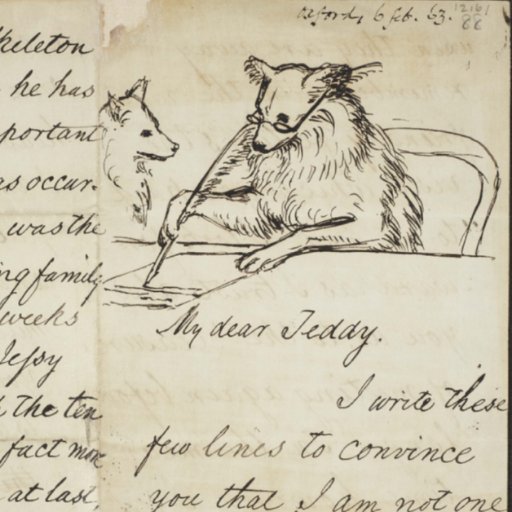 skeleton
he has
portant
as occur-
was the
ng family
weeks
Jessy
the ten
fact more
at last,
Oxford, 6 feb. 63.
88
My dear Teddy.
I write these
few lines to convince
you that I am not one